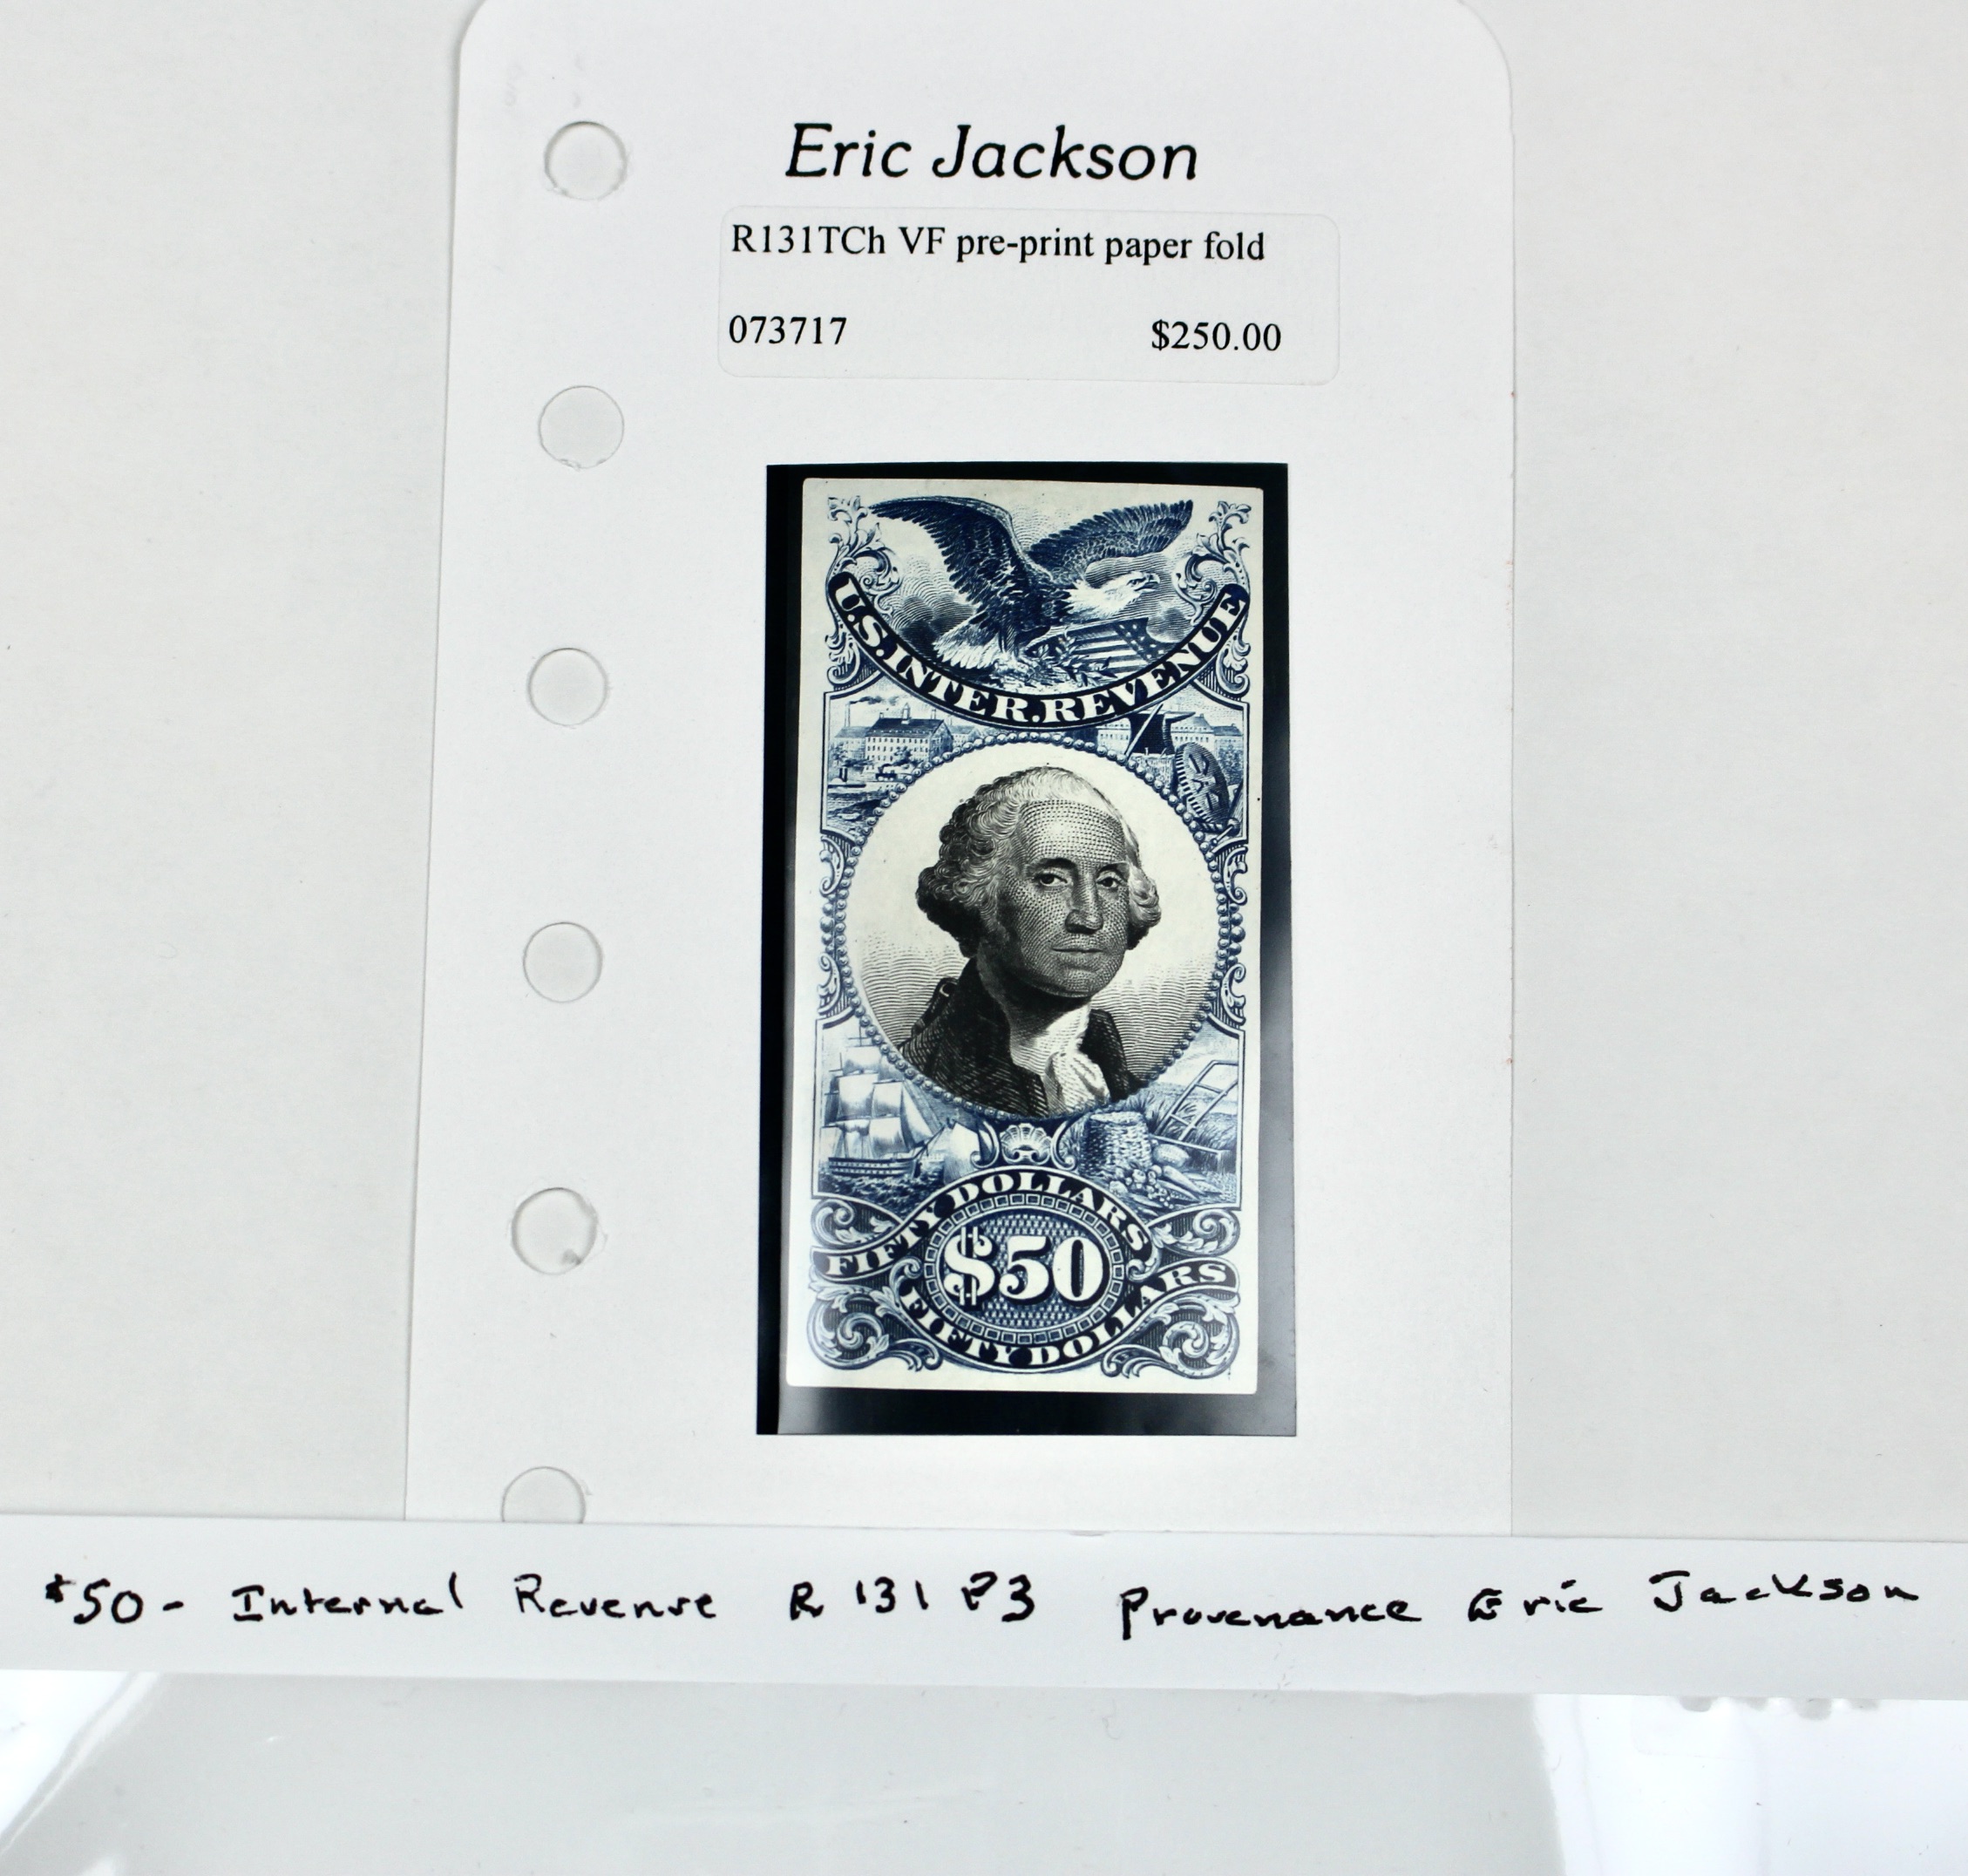 Eric Jackson
R131TCh VF pre-print paper fold
073717 $250.00
U.S. INTER. REVENUE
FIFTY DOLLARS
$50
FIFTY DOLLARS
$50- Internal Revenue R131P3 Provenance Eric Jackson